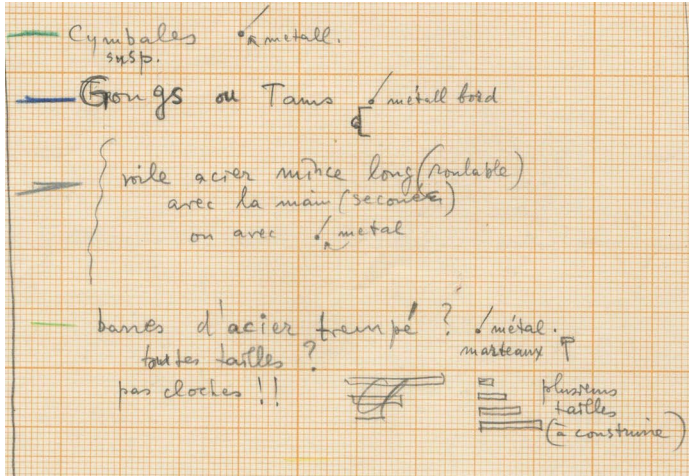 Cymbales métall.
susp.
Gongs ou Tams métall bord
voile acier mince long (roulable)
avec la main (secouée)
ou avec métal
barres d'acier trempé ? métal.
toutes tailles ? marteaux
pas cloches !! plusieurs
tailles
(à construire)